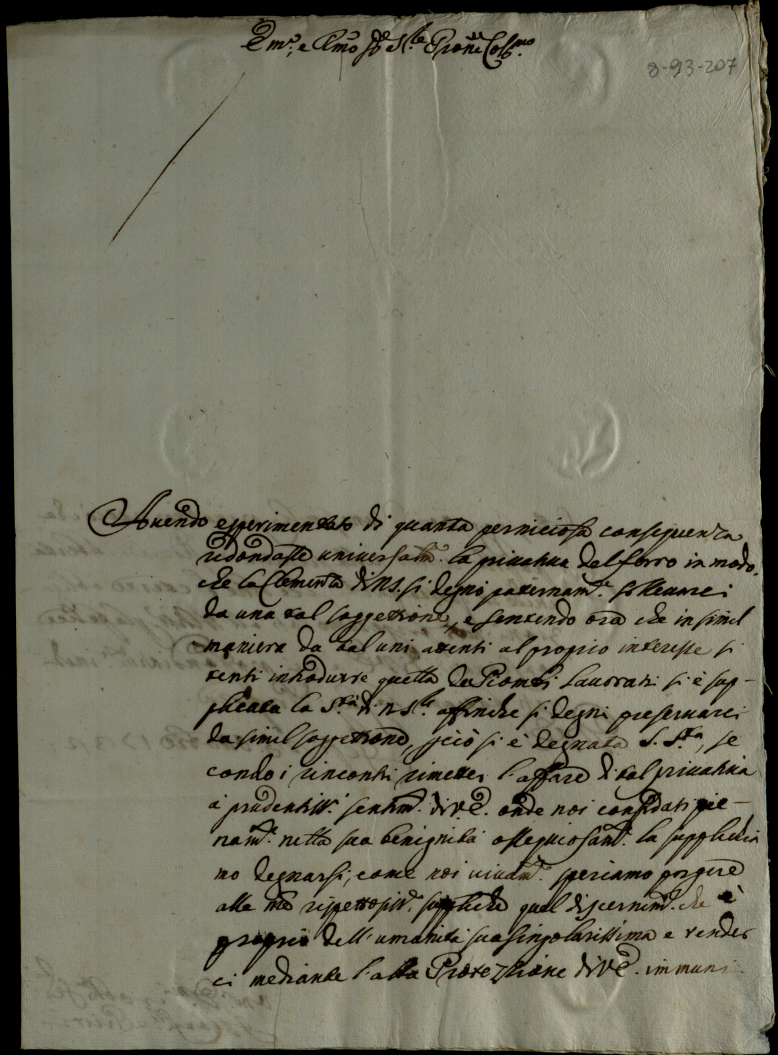 Em.º, e Rmo Sig.e S.re P.rone Col.mo
8-93-207
Avendo esperimentato di quanta perniciosa conseguenza
ridondasse universalm.te la privativa del ferro in modo,
che la Clemenza di N.S. si degnò paternam.te sollevarci
da una tal soggezione, e sentendo ora che in simil
maniera da tal'uni attenti al proprio interesse si
tenti introdurre quella de Piombi lavorati si è sup-
plicata la S.tà di N. S.re affinche si degni preservarci
da simil soggezione, e ciò si è degnata S. S.tà, se
condo i rincontri rimetter l'affare di tal privativa
a prudentiss.i sentim.ti di V.E. onde noi confidati pie-
nam.te nella sua benignità ossequiosam.te la supplichia
mo degnarsi, come noi vivam.te speriamo porgere
alle nre rispettosiss.e suppliche quel discernim.to che è
proprio dell'umanità sua singolarissima e render
ci mediante l'alta Protezzione di V.E. immuni